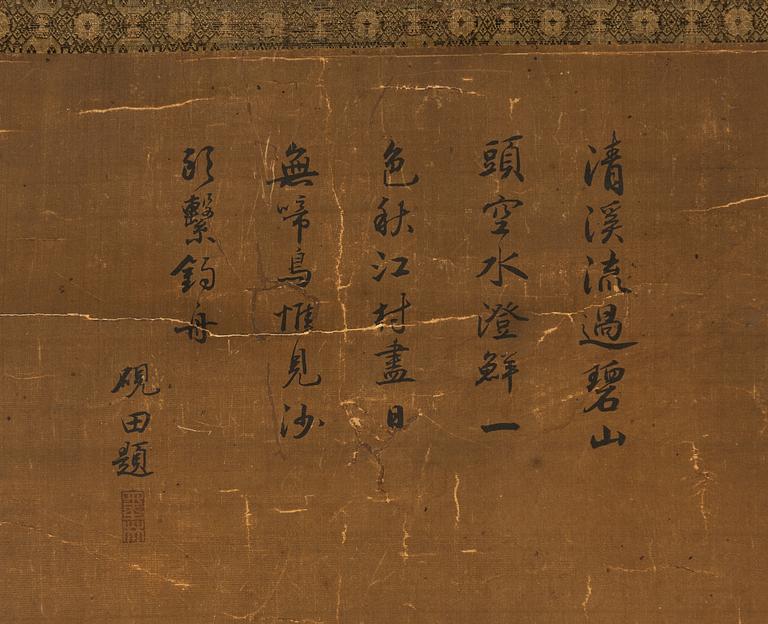 清溪流過碧山
頭空水澄鮮一
色秋江村盡日
無啼鳥惟見沙
頭繫釣舟
硯田題